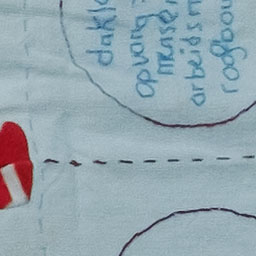 dakl
opvang
mense
arbeids
roofbou